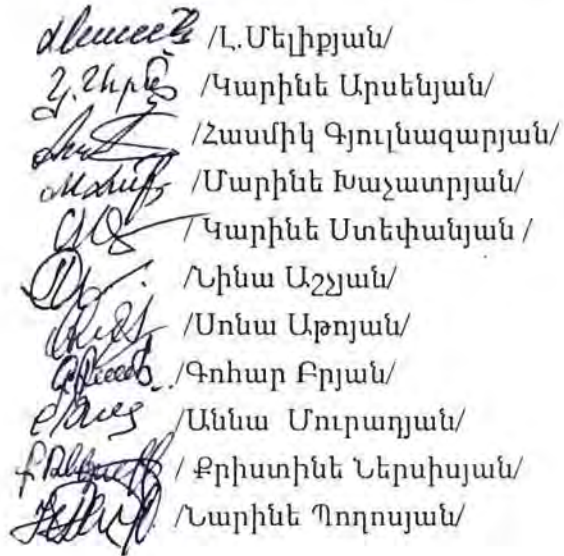 /Լ.Մելիքյան/
/Կարինե Արսենյան/
/Հասմիկ Գյուլնազարյան/
/Մարինե Խաչատրյան/
/Կարինե Ստեփանյան /
/Նինա Աշչյան/
/Սոնա Աթոյան/
/Գոհար Բրյան/
/Աննա Մուրադյան/
/ Քրիստինե Ներսիսյան/
/Նարինե Պողոսյան/